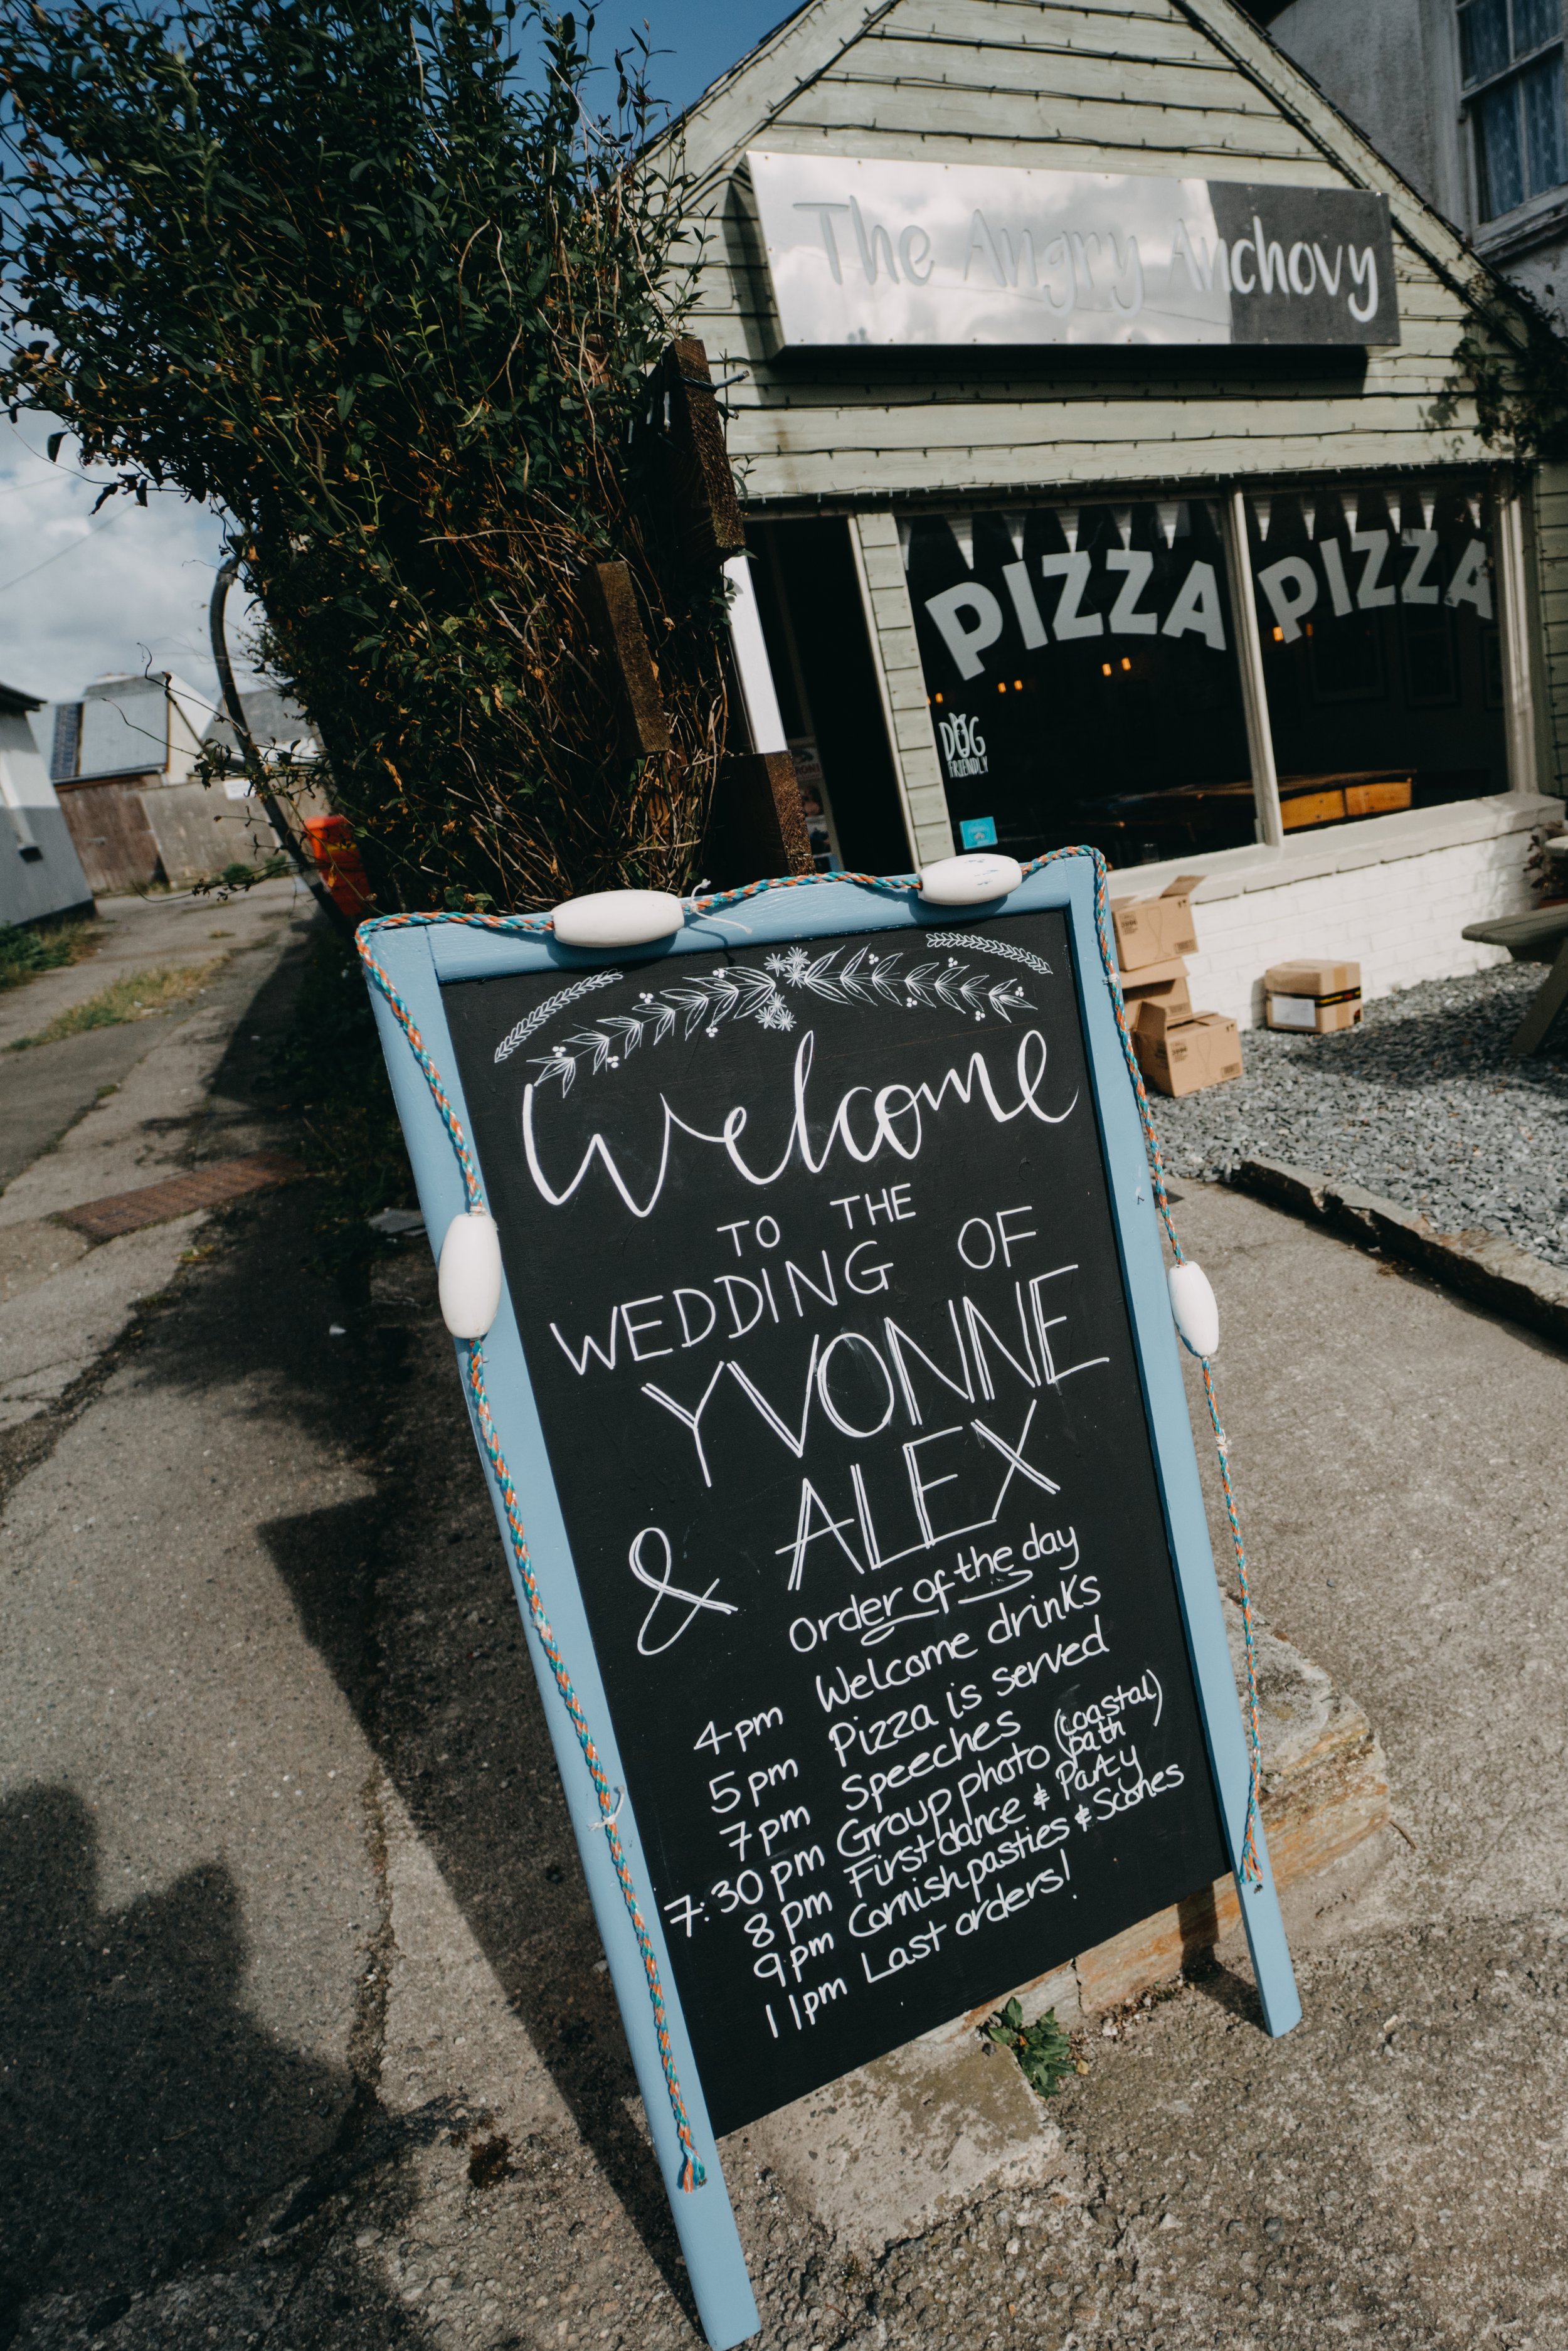 The Angry Anchovy
PIZZA PIZZA
DOG
FRIENDLY
Welcome
TO THE
WEDDING OF
YVONNE
& ALEX
Order of the day
4pm Welcome drinks
5pm Pizza is served
7pm Speeches
7:30pm Group photo (coastal path)
8pm First dance & Party
9pm Cornish pasties & Scones
11pm Last orders!